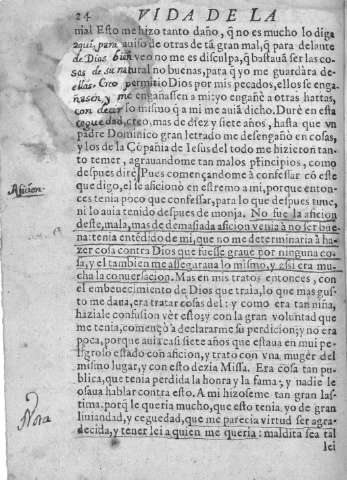 24 VIDA DE LA
nial Esto me hizo tanto daño, q̃ no es mucho lo diga
aqui, para auiso de otras de tã gran mal, q̃ para delante
de Dios bien veo no me es disculpa, q̃ bastaua ser las co-
sas de su natural no buenas, para q̃ yo me guardàra de-
ellas. Creo permitio Dios por mis pecados, ellos se enga-
ñassen, y me engañassen a mi: yo engañè a otras hartas,
con dezir lo mismo q̃ a mi me auia dicho. Durè en esta
ceguedad, creo, mas de diez y siete años, hasta que vn
padre Dominico gran letrado me desengañò en cosas,
y los de la Cõpañia de Iesus del todo me hizieron tan-
to temer, agrauandome tan malos principios, como
despues dirè. Pues començandome à confessar cõ este
Aficion. que digo, el se aficionò en estremo a mi, porque enton-
ces tenia poco que confessar, para lo que despues tuue,
ni lo auia tenido despues de monja. No fue la aficion
deste, mala, mas de demasiada aficion venia à no ser bue-
na: tenia entẽdido de mi, que no me determinaria à ha-
zer cosa contra Dios que fuesse graue por ninguna co-
sa, y el tambien me asseguraua lo mismo, y assi era mu-
cha la conuersacion. Mas en mis tratos entonces, con
el embeuecimiento de Dios que traia, lo que mas gus-
to me daua, era tratar cosas del: y como era tan niña,
haziale confusion vèr esto; y con la gran voluntad que
me tenia, començò à declararme su perdicion; y no era
poca, porque auia casi siete años que estaua en mui pe-
ligroso estado con aficion, y trato con vna muger del
mismo lugar, y con esto dezia Missa. Era cosa tan pu-
blica, que tenia perdida la honra y la fama, y nadie le
osaua hablar contra esto. A mi hizoseme tan gran las-
tima, porq̃ le queria mucho, que esto tenia yo de gran
Nota liuiandad, y ceguedad, que me parecia virtud ser agra-
decida, y tener lei a quien me queria: maldita sea tal
lei